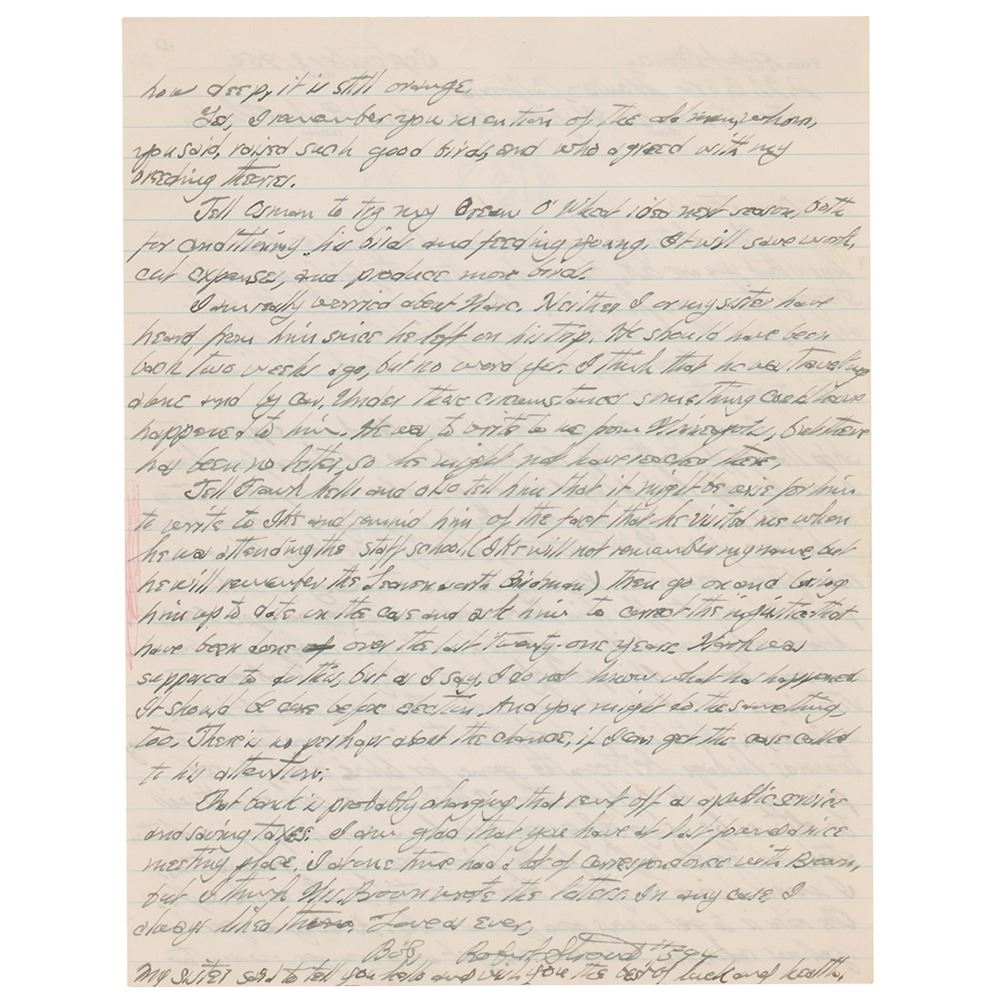 how deep, it is still orange.
Yes, I remember your mention of the old man, whom,
you said, raised such good birds, and who agreed with my
breeding theries.
Tell Osman to try my Cream O' Wheat idea next season, both
for conditioning his birds and feeding young. It will save work,
cut expenses, and produce more birds.
I am really worried about Marc. Neither I or my sister have
heard from him since he left on his trip. He should have been
back two weeks ago, but no word yet. I think that he was traveling
alone and by car. Under those circumstances something could have
happened to him. He was to write to me from Minneapolis, but there
has been no letter, so he might not have reached there.
Tell Frank hello and also tell him that it might be wise for him
to write to Ike and remind him of the fact that he visited me when
he was attending the staff school. (Ike will not remember my name, but
he will remember the Leavenworth Birdman) then go on and bring
him up to date on the case and ask him to correct the injustice that
have been done over the last twenty-one years. Mark was
supposed to do this, but as I say, I do not know what has happened
It should be done before election. And you might do the same thing,
too. There is no perhaps about the chance, if I can get the case called
to his attention.
That bank is probably charging that rent off as a public service
and saving taxes. I am glad that you have at last found a nice
meeting place. I at one time had a lot of correspondence with Brown,
but I think Mrs. Brown wrote the letters. In any case, I
always liked them. Love as ever,
Bob, Robert Stroud #594
My sister said to tell you hello and wish you the best of luck and health.